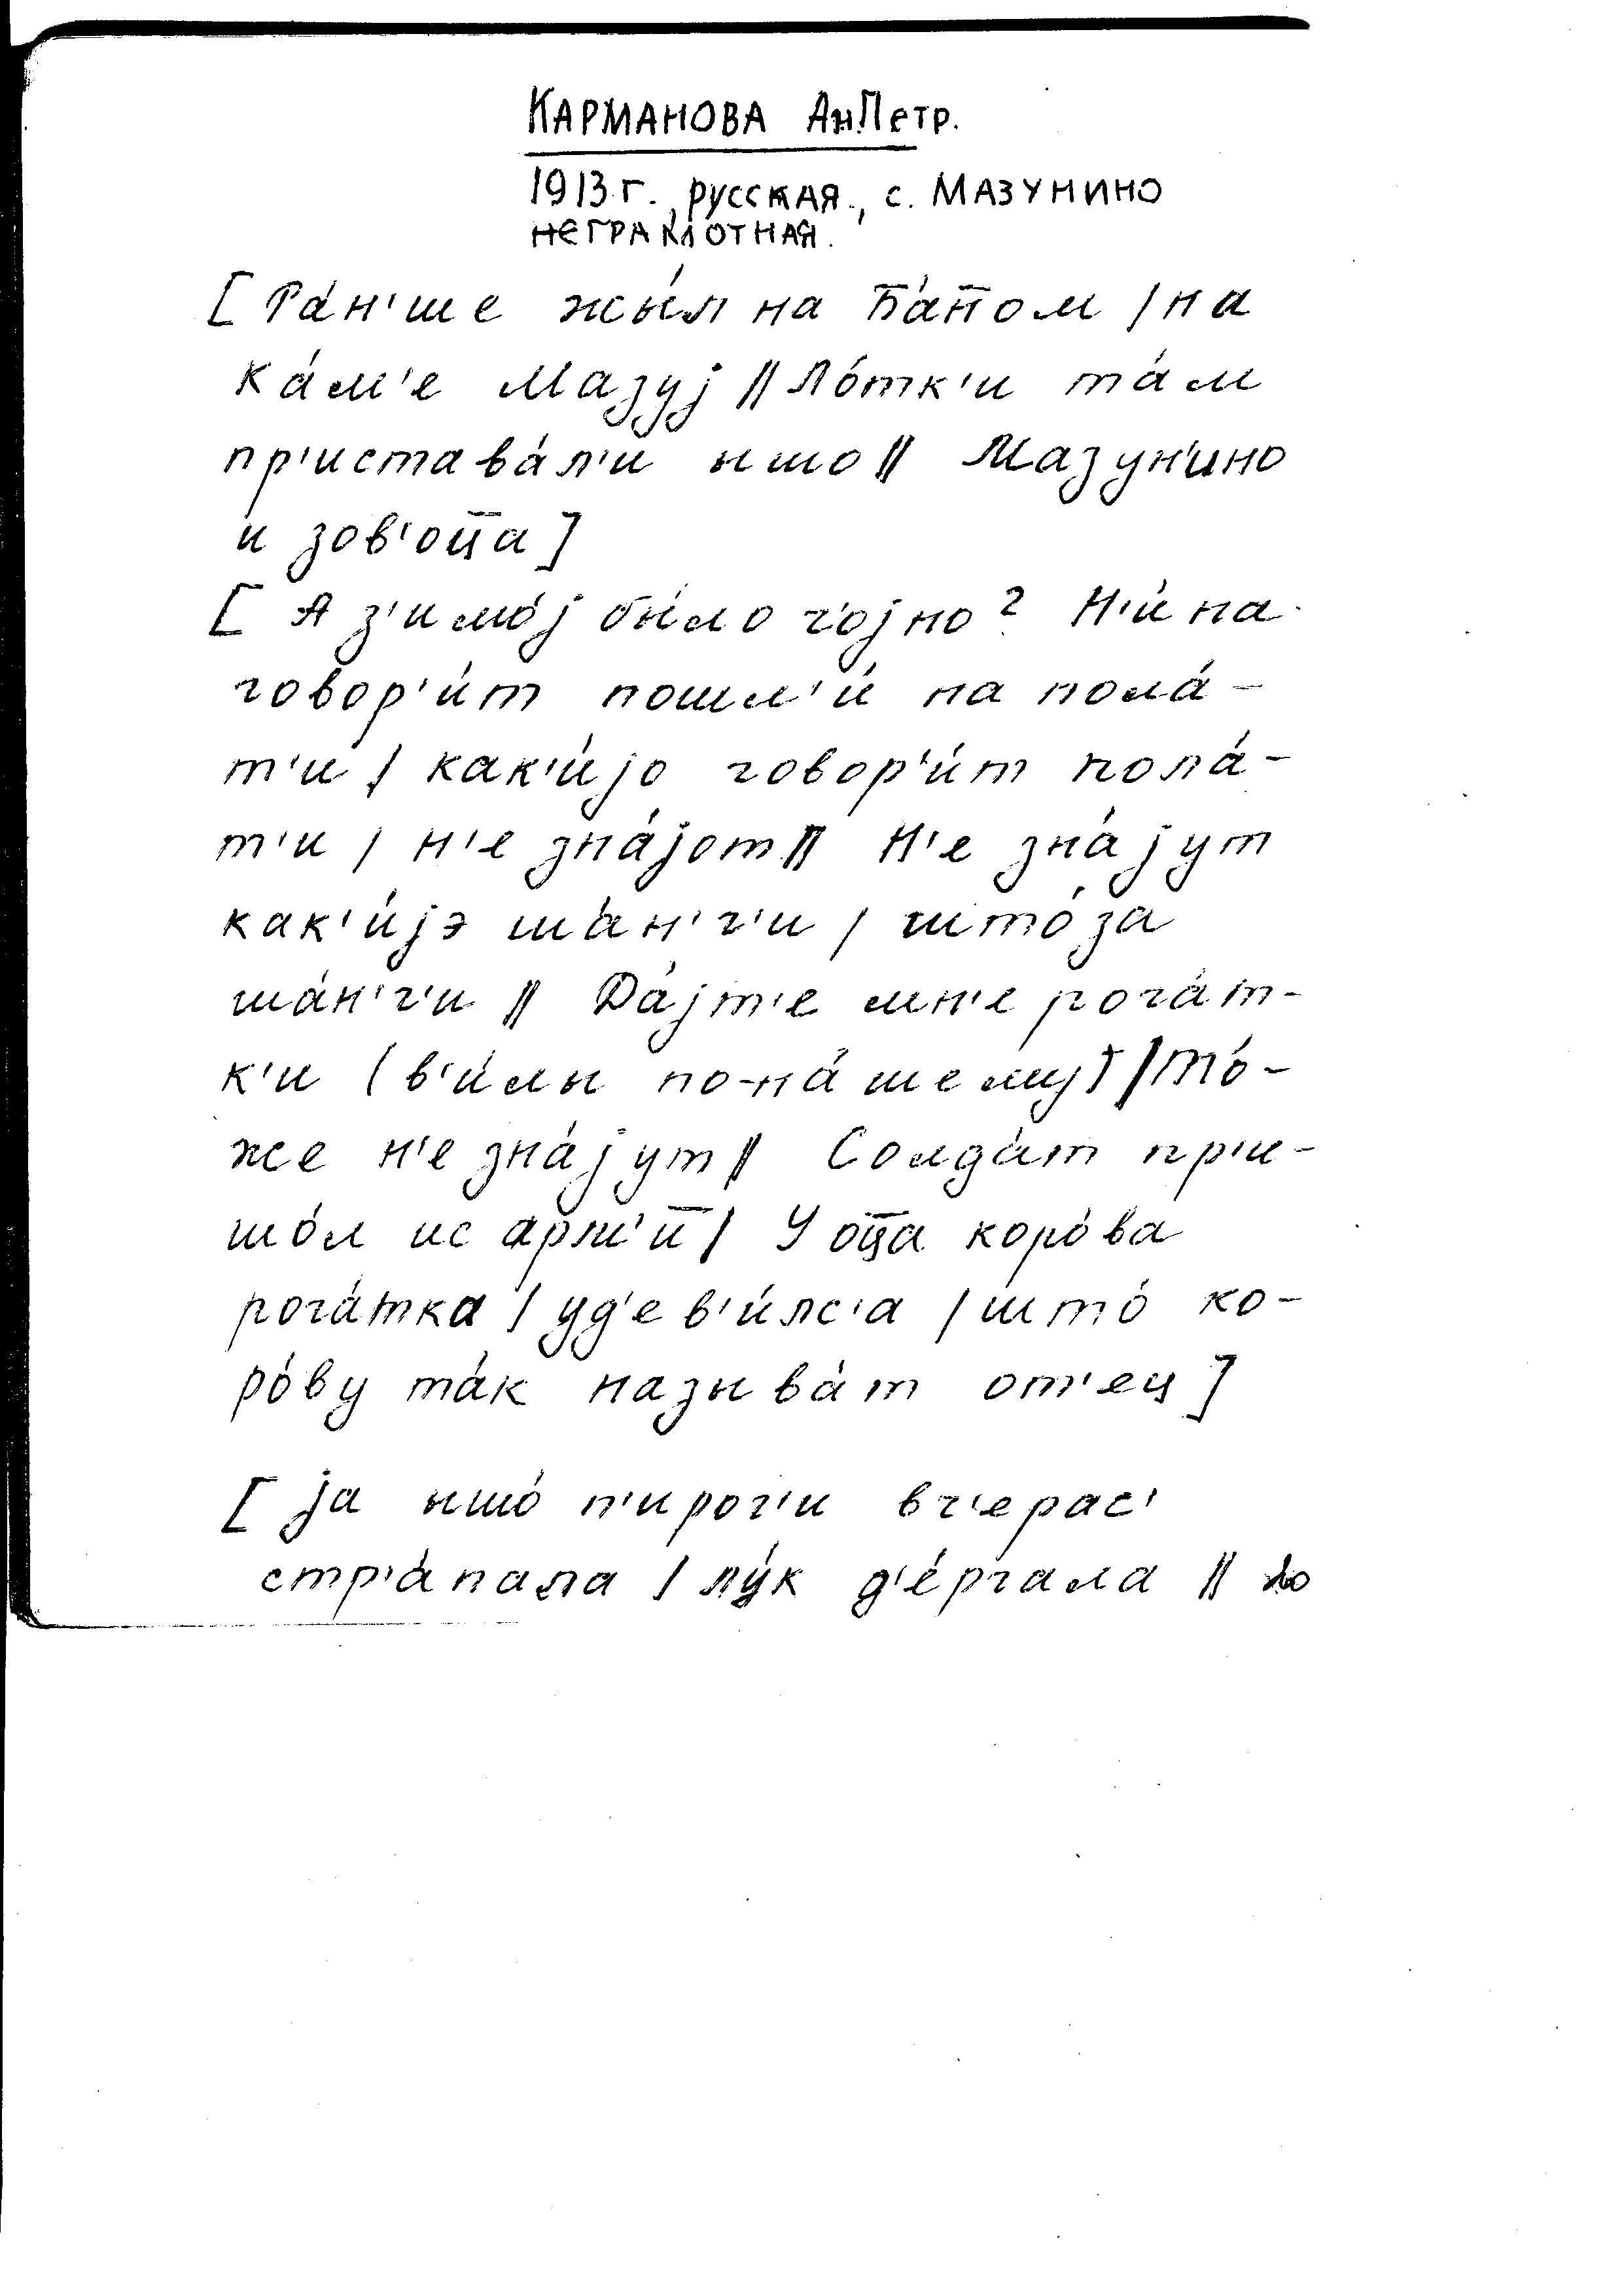 КАРМАНОВА Ан.Петр.
1913 г., русская., с. МАЗУНИНО
НЕГРАМОТНАЯ.
[ Ра́н'ше жы́л на Ба́п̅ом / на
ка́м'е Мазуj // Ло́тк'и та́м
пр'истава́л'и ышо // Мазун'ино
и зов'оц̅а ]
[ А з'имо́j бы́ло г'оjно? Н'и́на
говор'и́т пошл'и́ на пола́-
т'и / как'и́jо говор'и́т пола́-
т'и / н'е зна́jот // Н'е зна́jут
как'и́jэ ша́н'г'и / што́ за
ша́н'г'и // Да́jт'е мн'е рога́т-
к'и (в'и́лы по-на́шему) / То́-
же н'е зна́jут // Солда́т пр'и-
шо́л ис арм'и̅ / У оц̅а коро́ва
рога́тка / уд'ев'и́лс'а / што́ ко-
ро́ву та́к называ́т от'ец ]
[ jа ышо́ п'ирог'и вч'ерас'
стр'а́пала / лу́к д'е́ргала //